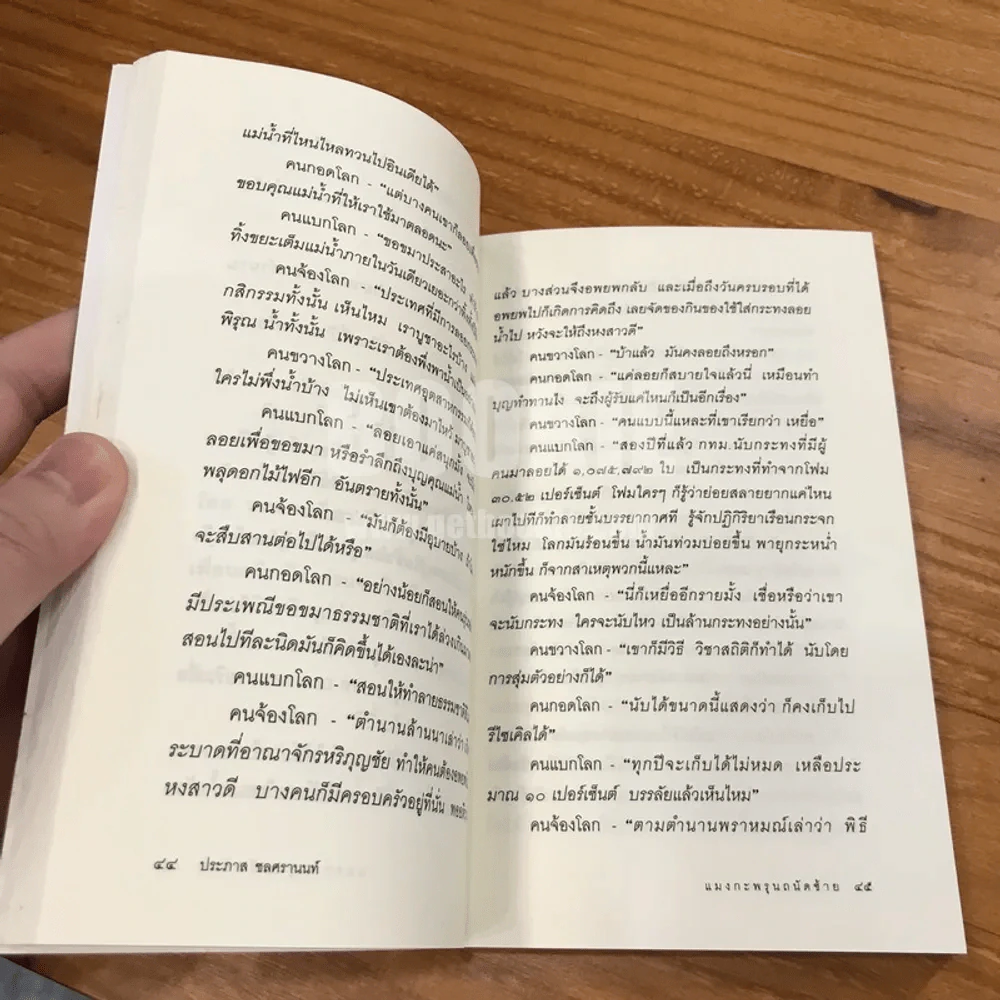 แม่น้ำที่ไหนไหลทวนไปอินเดียได้”
คนกอดโลก - “แต่บางคนเขาก็ลอย
ขอบคุณแม่น้ำที่ให้เราใช้มาตลอดนะ”
คนแบกโลก - “ขอขมาประสาอะไร
ทิ้งขยะเต็มแม่น้ำภายในวันเดียวเยอะกว่า
คนจ้องโลก - “ประเทศที่มีการลอย
กสิกรรมทั้งนั้น เห็นไหม เราบูชาอะไรบ้าง
พิรุณ น้ำทั้งนั้น เพราะเราต้องพึ่งพาน้ำเป็น
คนขวางโลก - “ประเทศอุตสาหกรรม
ใครไม่พึ่งน้ำบ้าง ไม่เห็นเขาต้องมาไหว้
คนแบกโลก - “ลอยเอาแค่สนุกมั้ง
ลอยเพื่อขอขมา หรือรำลึกถึงบุญคุณแม่น้ำ
พลุดอกไม้ไฟอีก อันตรายทั้งนั้น”
คนจ้องโลก - “มันก็ต้องมีอุบายบ้าง
จะสืบสานต่อไปได้หรือ”
คนกอดโลก - “อย่างน้อยก็สอนให้คน
มีประเพณีขอขมาธรรมชาติที่เราได้ล่วงเกิน
สอนไปทีละนิดมันก็คิดขึ้นได้เองละน่า”
คนแบกโลก - “สอนให้ทำลายธรรมชาติ
คนจ้องโลก - “ตำนานล้านนาเล่าว่า
ระบาดที่อาณาจักรหริภุญชัย ทำให้คนต้อง
หงสาวดี บางคนก็มีครอบครัวอยู่ที่นั่น พอ
๔๔ ประภาส ชลศรานนท์
แล้ว บางส่วนจึงอพยพกลับ และเมื่อถึงวันครบรอบที่ได้
อพยพไปก็เกิดการคิดถึง เลยจัดของกินของใช้ใส่กระทงลอย
น้ำไป หวังจะให้ถึงหงสาวดี”
คนขวางโลก - “บ้าแล้ว มันคงลอยถึงหรอก”
คนกอดโลก - “แค่ลอยก็สบายใจแล้วนี่ เหมือนทำ
บุญทำทานไง จะถึงผู้รับแค่ไหนก็เป็นอีกเรื่อง”
คนขวางโลก - “คนแบบนี้แหละที่เขาเรียกว่า เหยื่อ”
คนแบกโลก - “สองปีที่แล้ว กทม.นับกระทงที่มีผู้
คนมาลอยได้ ๑,๐๗๕,๗๙๒ ใบ เป็นกระทงที่ทำจากโฟม
๓๐.๕๒ เปอร์เซ็นต์ โฟมใครๆ ก็รู้ว่าย่อยสลายยากแค่ไหน
เผาไปทีก็ทำลายชั้นบรรยากาศที รู้จักปฏิกิริยาเรือนกระจก
ใช่ไหม โลกมันร้อนขึ้น น้ำมันท่วมบ่อยขึ้น พายุกระหน่ำ
หนักขึ้น ก็จากสาเหตุพวกนี้แหละ”
คนจ้องโลก - “นี่ก็เหยื่ออีกรายมั้ง เชื่อหรือว่าเขา
จะนับกระทง ใครจะนับไหว เป็นล้านกระทงอย่างนั้น”
คนขวางโลก - “เขาก็มีวิธี วิชาสถิติก็ทำได้ นับโดย
การสุ่มตัวอย่างก็ได้”
คนกอดโลก - “นับได้ขนาดนี้แสดงว่า ก็คงเก็บไป
รีไซเคิลได้”
คนแบกโลก - “ทุกปีจะเก็บได้ไม่หมด เหลือประ
มาณ ๑๐ เปอร์เซ็นต์ บรรลัยแล้วเห็นไหม”
คนจ้องโลก - “ตามตำนานพราหมณ์เล่าว่า พิธี
แมงกะพรุนถนัดซ้าย ๔๕